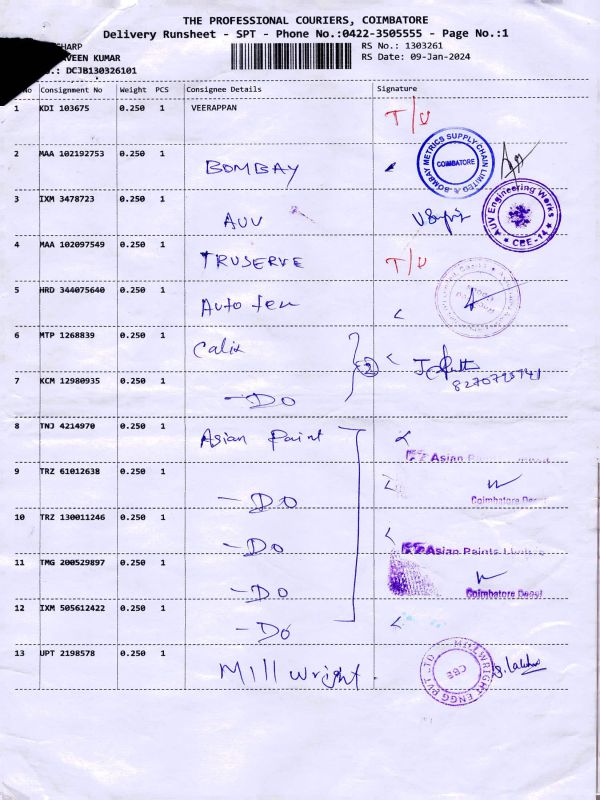 THE PROFESSIONAL COURIERS, COIMBATORE
Delivery Runsheet - SPT - Phone No.:0422-3505555 - Page No.:1
SHARP RS No.: 1303261
VEEN KUMAR RS Date: 09-Jan-2024
.: DCJB130326101
No Consignment No Weight PCS Consignee Details Signature
1 KDI 103675 0.250 1 VEERAPPAN T/U
2 MAA 102192753 0.250 1 BOMBAY
BOMBAY METRICS SUPPLY CHAIN LIMITED
COIMBATORE
3 IXM 3478723 0.250 1 AUV
AUV Engineering Works
CBE-14
4 MAA 102097549 0.250 1 TRUSERVE T/U
5 HRD 344075640 0.250 1 Auto Tex
6 MTP 1268839 0.250 1 Calix 2
8270795941
7 KCM 12980935 0.250 1 -DO
8 TNJ 4214970 0.250 1 Asian Paint
Asian Paints
9 TRZ 61012638 0.250 1 -DO
Coimbatore Depot
10 TRZ 130011246 0.250 1 -DO
Asian Paints Limited
11 TMG 200529897 0.250 1 -DO
Coimbatore Depot
12 IXM 505612422 0.250 1 -DO
13 UPT 2198578 0.250 1 Mill wright.
MILLWRIGHT ENGG PVT LTD
CBE